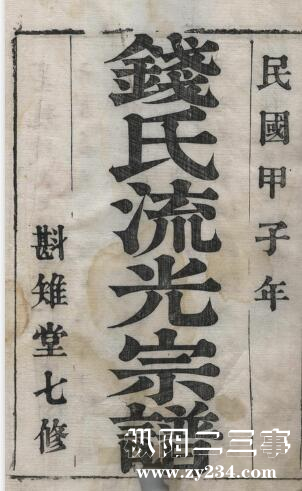 民國甲子年
錢氏流光宗譜
斟雉堂七修
枞阳二三事
www.zy234.com